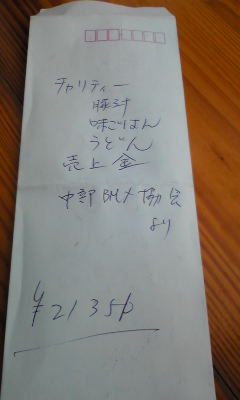 チャリティー
豚汁
味ごはん
うどん
売上金
中部BMX協会
より
¥21350